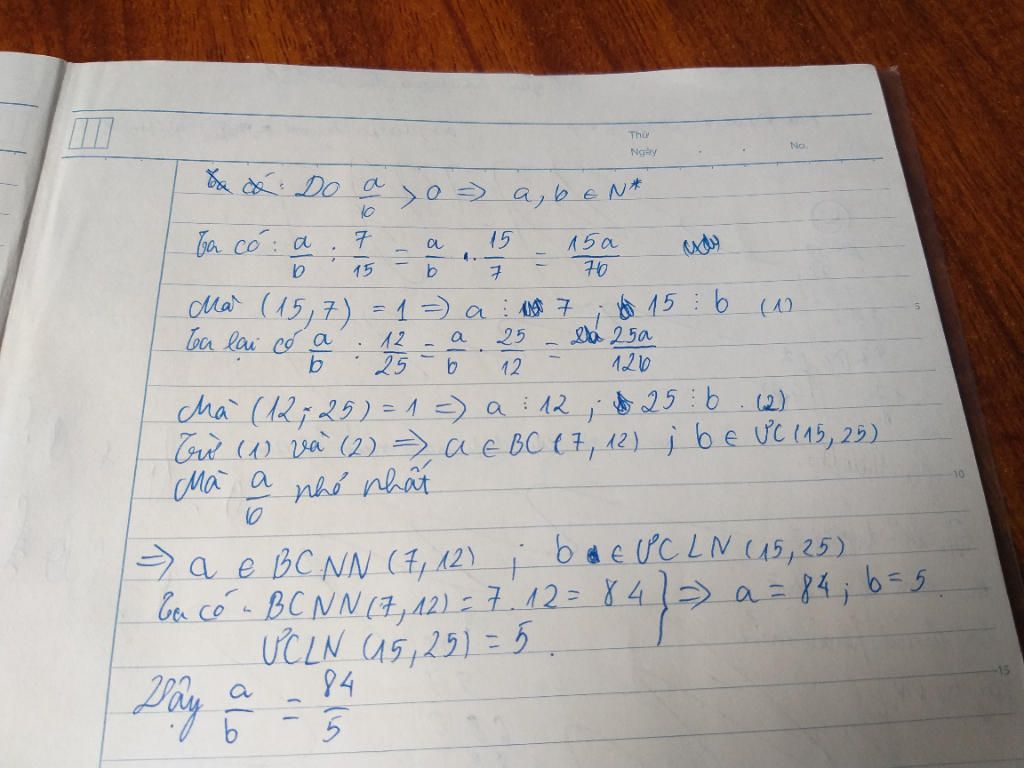 Thứ
Ngày . . No.
Do a/b > 0 => a, b ∈ N*
Ta có: a/b : 7/15 = a/b . 15/7 = 15a/7b
Mà (15,7) = 1 => a ⋮ 7 ; 15 ⋮ b (1)
5
Ta lại có a/b : 12/25 = a/b . 25/12 = 25a/12b
Mà (12; 25) = 1 => a ⋮ 12 ; 25 ⋮ b . (2)
Từ (1) và (2) => a ∈ BC(7, 12) ; b ∈ ƯC(15, 25)
Mà a/b nhỏ nhất
10
=> a ∈ BCNN(7,12) ; b ∈ ƯCLN(15,25)
Ta có - BCNN(7,12) = 7.12 = 84 } => a = 84; b = 5.
ƯCLN (15,25) = 5.
15
Vậy a/b = 84/5